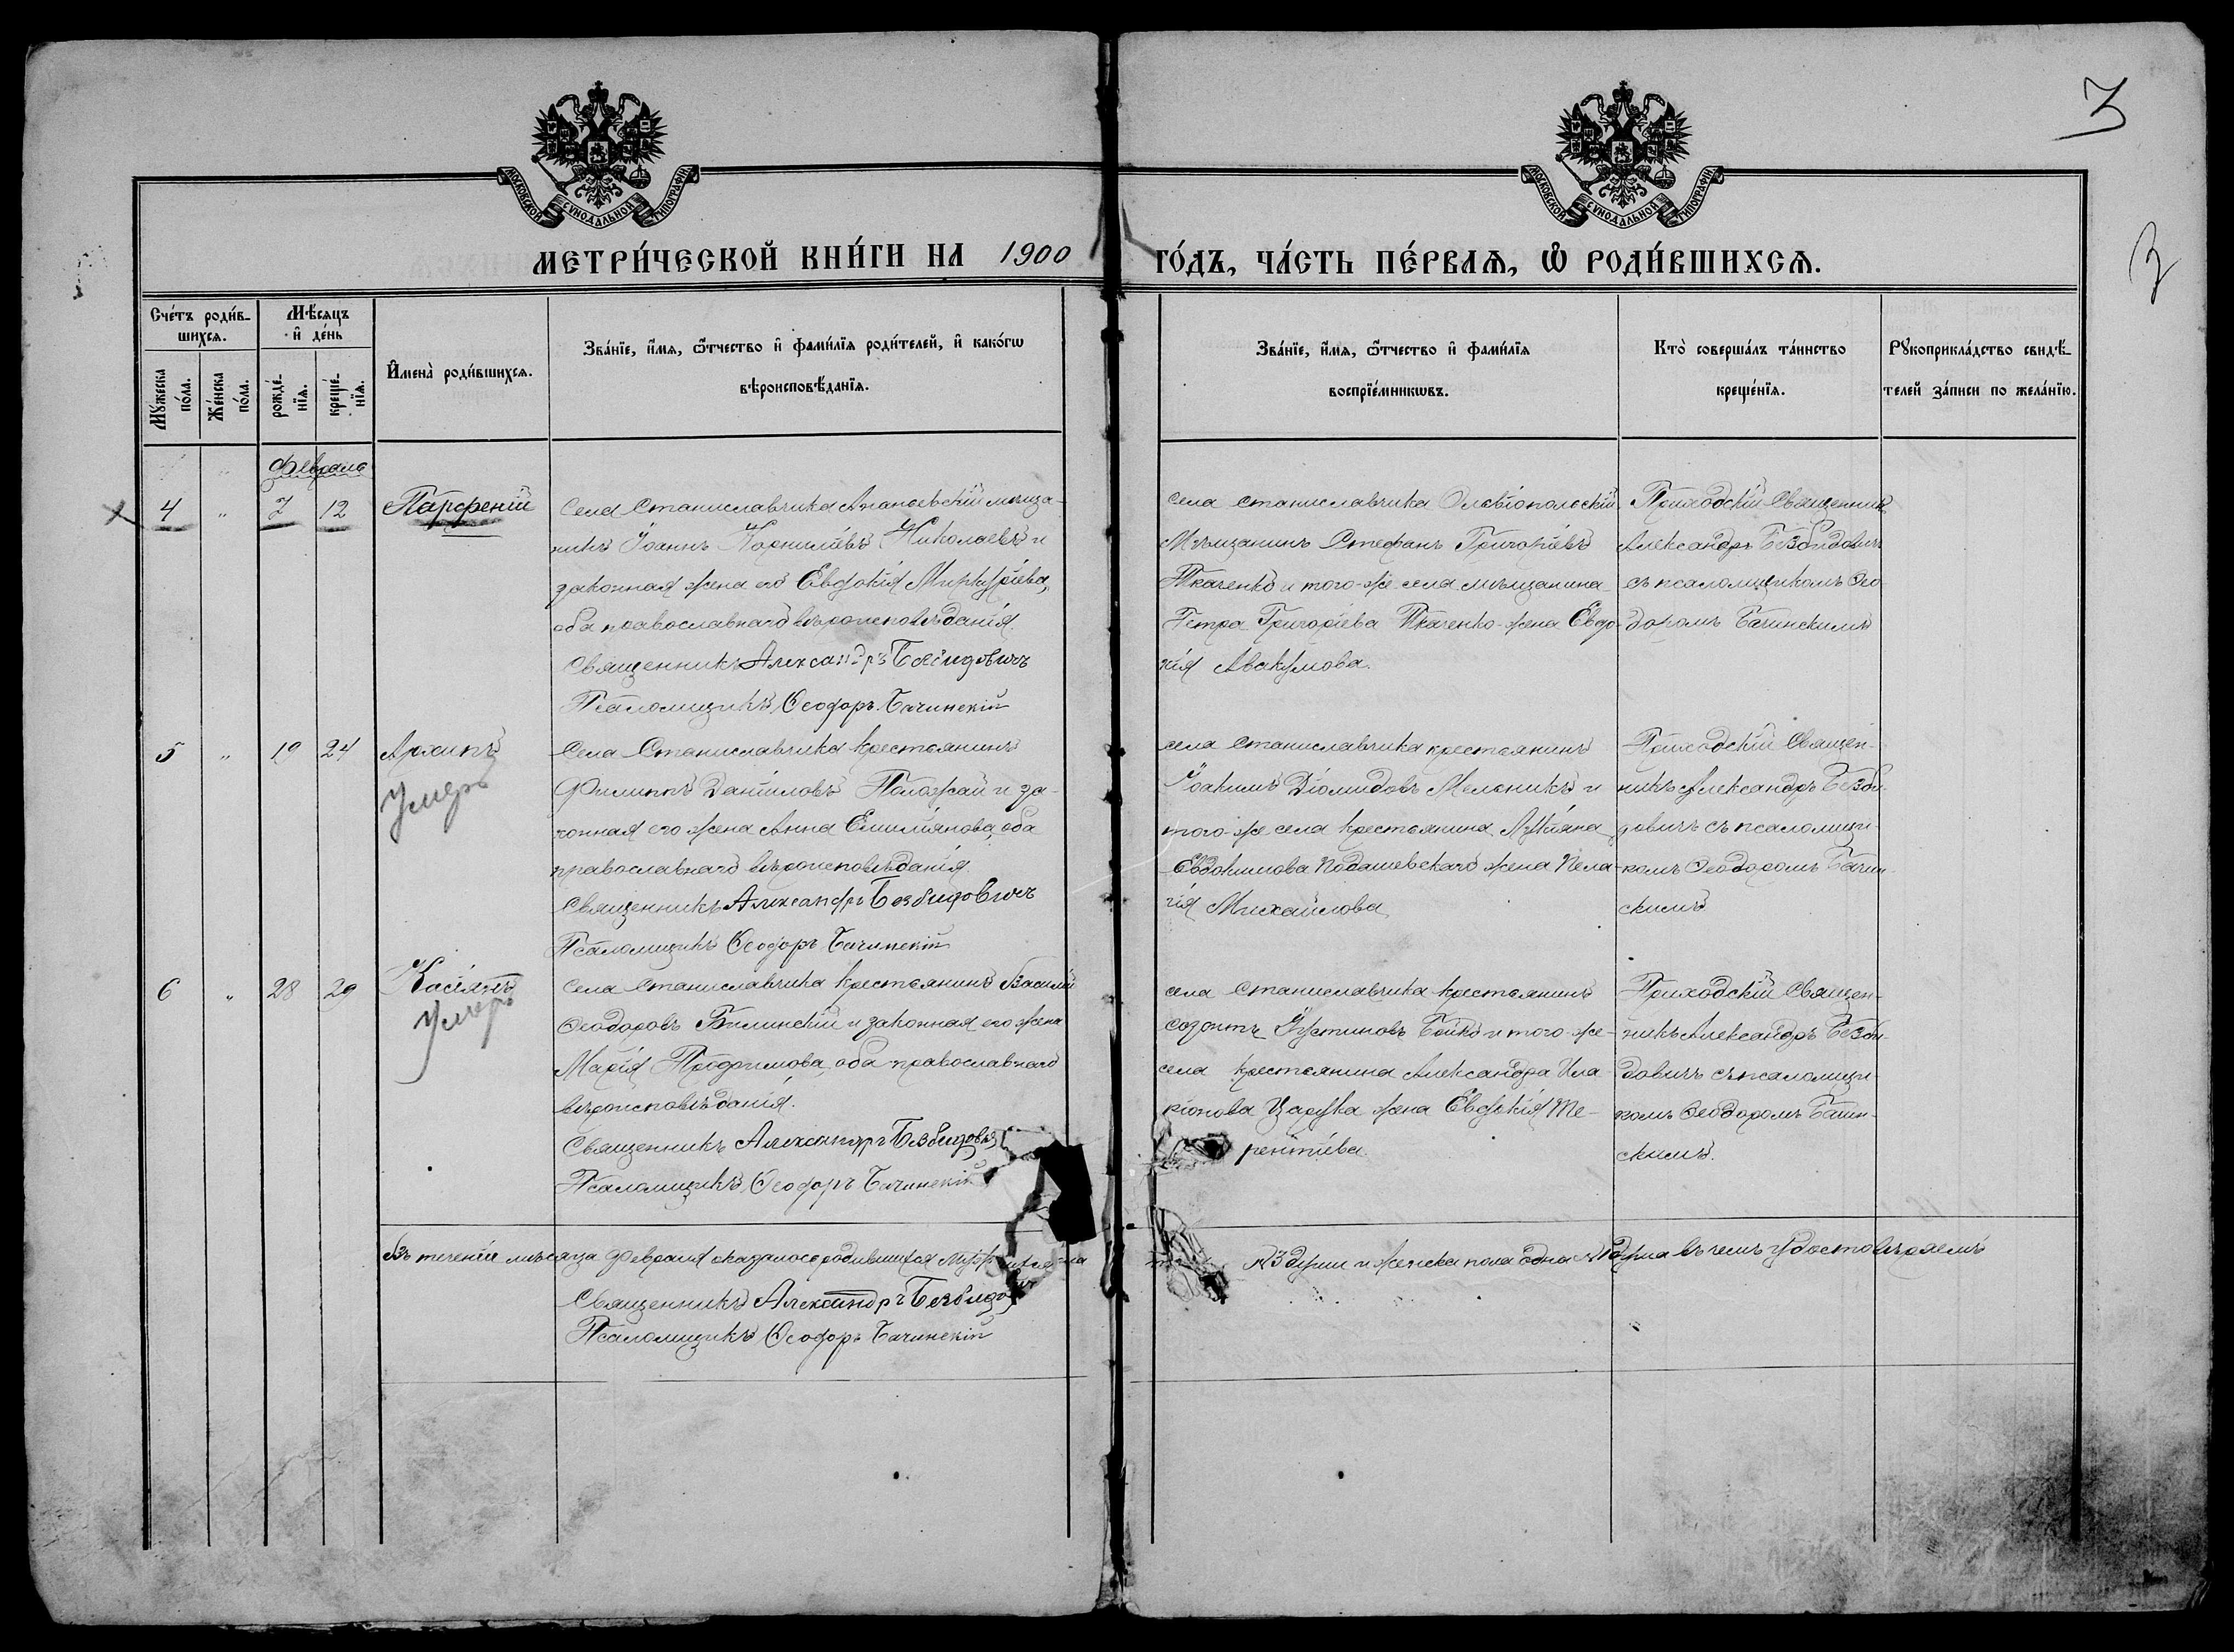 3
3
МОСКОВСКОЙ СѴНОДАЛЬНОЙ ТИПОГРАФІИ
МОСКОВСКОЙ СѴНОДАЛЬНОЙ ТИПОГРАФІИ
МЕТРИ́ЧЕСКОЙ КНИ́ГИ НА 1900 ГО́ДЪ, ЧА́СТЬ ПЕ́РВАѦ, Ѡ РОДИ́ВШИХСѦ.
Сче́тъ роди́в-
шихсѧ.
Мꙋ́жеска по́ла.
Же́нска по́ла.
Мѣ́сѧцъ
и҆ де́нь
рожде́-
нїѧ.
креще́-
нїѧ.
И҆мена̀ роди́вшихсѧ.
Зва́нїе, и҆́мѧ, ѻ҆́тчество и҆ фами́лїѧ роди́телей, и҆ како́гѡ
вѣроисповѣ́данїѧ.
Зва́нїе, и҆́мѧ, ѻ҆́тчество и҆ фами́лїѧ
воспрїе́мникѡвъ.
Кто̀ соверша́лъ та́инство
креще́нїѧ.
Рꙋкоприкла́дство свидѣ́-
телей за́писи по жела́нїю.
Февраль
4 " 7 12 Парфеній
Села Станиславчика Ананьевскій мѣща-
нинъ Іоаннъ Корниліевъ Николаевъ и
законная жена его Евдокія Миркуріева,
оба православнаго вѣроисповѣданія.
Священникъ Александръ Безбидовичъ
Псаломщикъ Ѳеодоръ Бачинскій
села Станиславчика Ольвіопольскій
Мѣщанинъ Стефанъ Григоріевъ
Ткаченко и того-же села мѣщанина
Петра Григоріева Ткаченко жена Евдо-
кія Авакумова.
Приходскій Священникъ
Александръ Безбидовичъ
съ псаломщикомъ Ѳео
доромъ Бачинскимъ
5 " 19 24 Архипъ
Умеръ
Села Станиславчика крестьянинъ
Филиппъ Даніиловъ Положай и за-
конная его жена Анна Емиліянова, оба
православнаго вѣроисповѣданія.
Священникъ Александръ Безбидовичъ
Псаломщикъ Ѳеодоръ Бачинскій
села Станиславчика крестьянинъ
Іоакимъ Діомидовъ Мельникъ и
того-же села крестьянина Лукіана
Евдокимова Подашевскаго жена Пела-
гія Михайлова
Приходскій Священ-
никъ Александръ Безби-
довичъ съ псаломщи-
комъ Ѳеодоромъ Бачин-
скимъ
6 " 28 29 Касіянъ
Умеръ
Села Станиславчика крестьянинъ Василій
Ѳеодоровъ Билинскій и законная его жена
Марія Трофимова, оба православнаго
вѣроисповѣданія.
Священникъ Александръ Безбидовичъ
Псаломщикъ Ѳеодоръ Бачинскій
села Станиславчика крестьянинъ
Созонтъ Іустиновъ Бойко и того-же
села крестьянина Александра Ила
ріонова Царука жена Евдокія Те-
рентіева
Приходскій Священ-
никъ Александръ Безби-
довичъ съ псаломщи-
комъ Ѳеодоромъ Бачин-
скимъ.
Въ теченіи мѣсяца Февраля оказалось родившихся 3 души и женска пола одна душа въ чемъ удостовѣряемъ
Священникъ Александръ Безбидо
Псаломщикъ Ѳеодоръ Бачинскій